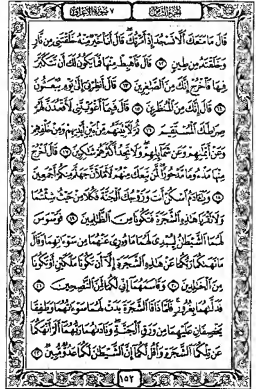 الجزء الثامن ٧ سورة الأعراف
قَالَ مَا مَنَعَكَ أَلَّا تَسْجُدَ إِذْ أَمَرْتُكَ قَالَ أَنَا۠ خَيْرٌ مِّنْهُ خَلَقْتَنِى مِن نَّارٍ
وَخَلَقْتَهُۥ مِن طِينٍ ١٢ قَالَ فَٱهْبِطْ مِنْهَا فَمَا يَكُونُ لَكَ أَن تَتَكَبَّرَ
فِيهَا فَٱخْرُجْ إِنَّكَ مِنَ ٱلصَّٰغِرِينَ ١٣ قَالَ أَنظِرْنِىٓ إِلَىٰ يَوْمِ يُبْعَثُونَ
١٤ قَالَ إِنَّكَ مِنَ ٱلْمُنظَرِينَ ١٥ قَالَ فَبِمَآ أَغْوَيْتَنِى لَأَقْعُدَنَّ لَهُمْ
صِرَٰطَكَ ٱلْمُسْتَقِيمَ ١٦ ثُمَّ لَءَاتِيَنَّهُم مِّنۢ بَيْنِ أَيْدِيهِمْ وَمِنْ خَلْفِهِمْ
وَعَنْ أَيْمَٰنِهِمْ وَعَن شَمَآئِلِهِمْ وَلَا تَجِدُ أَكْثَرَهُمْ شَٰكِرِينَ ١٧ قَالَ ٱخْرُجْ
مِنْهَا مَذْءُومًا مَّدْحُورًا لَّمَن تَبِعَكَ مِنْهُمْ لَأَمْلَأَنَّ جَهَنَّمَ مِنكُمْ أَجْمَعِينَ
١٨ وَيَٰٓـَٔادَمُ ٱسْكُنْ أَنتَ وَزَوْجُكَ ٱلْجَنَّةَ فَكُلَا مِنْ حَيْثُ شِئْتُمَا
وَلَا تَقْرَبَا هَٰذِهِ ٱلشَّجَرَةَ فَتَكُونَا مِنَ ٱلظَّٰلِمِينَ ١٩ فَوَسْوَسَ
لَهُمَا ٱلشَّيْطَٰنُ لِيُبْدِىَ لَهُمَا مَا وُۥرِىَ عَنْهُمَا مِن سَوْءَٰتِهِمَا وَقَالَ
مَا نَهَىٰكُمَا رَبُّكُمَا عَنْ هَٰذِهِ ٱلشَّجَرَةِ إِلَّآ أَن تَكُونَا مَلَكَيْنِ أَوْ تَكُونَا
مِنَ ٱلْخَٰلِدِينَ ٢٠ وَقَاسَمَهُمَآ إِنِّى لَكُمَا لَمِنَ ٱلنَّٰصِحِينَ ٢١
فَدَلَّىٰهُمَا بِغُرُورٍ فَلَمَّا ذَاقَا ٱلشَّجَرَةَ بَدَتْ لَهُمَا سَوْءَٰتُهُمَا وَطَفِقَا
يَخْصِفَانِ عَلَيْهِمَا مِن وَرَقِ ٱلْجَنَّةِ وَنَادَىٰهُمَا رَبُّهُمَآ أَلَمْ أَنْهَكُمَا
عَن تِلْكُمَا ٱلشَّجَرَةِ وَأَقُل لَّكُمَآ إِنَّ ٱلشَّيْطَٰنَ لَكُمَا عَدُوٌّ مُّبِينٌ ٢٢
١٥٢